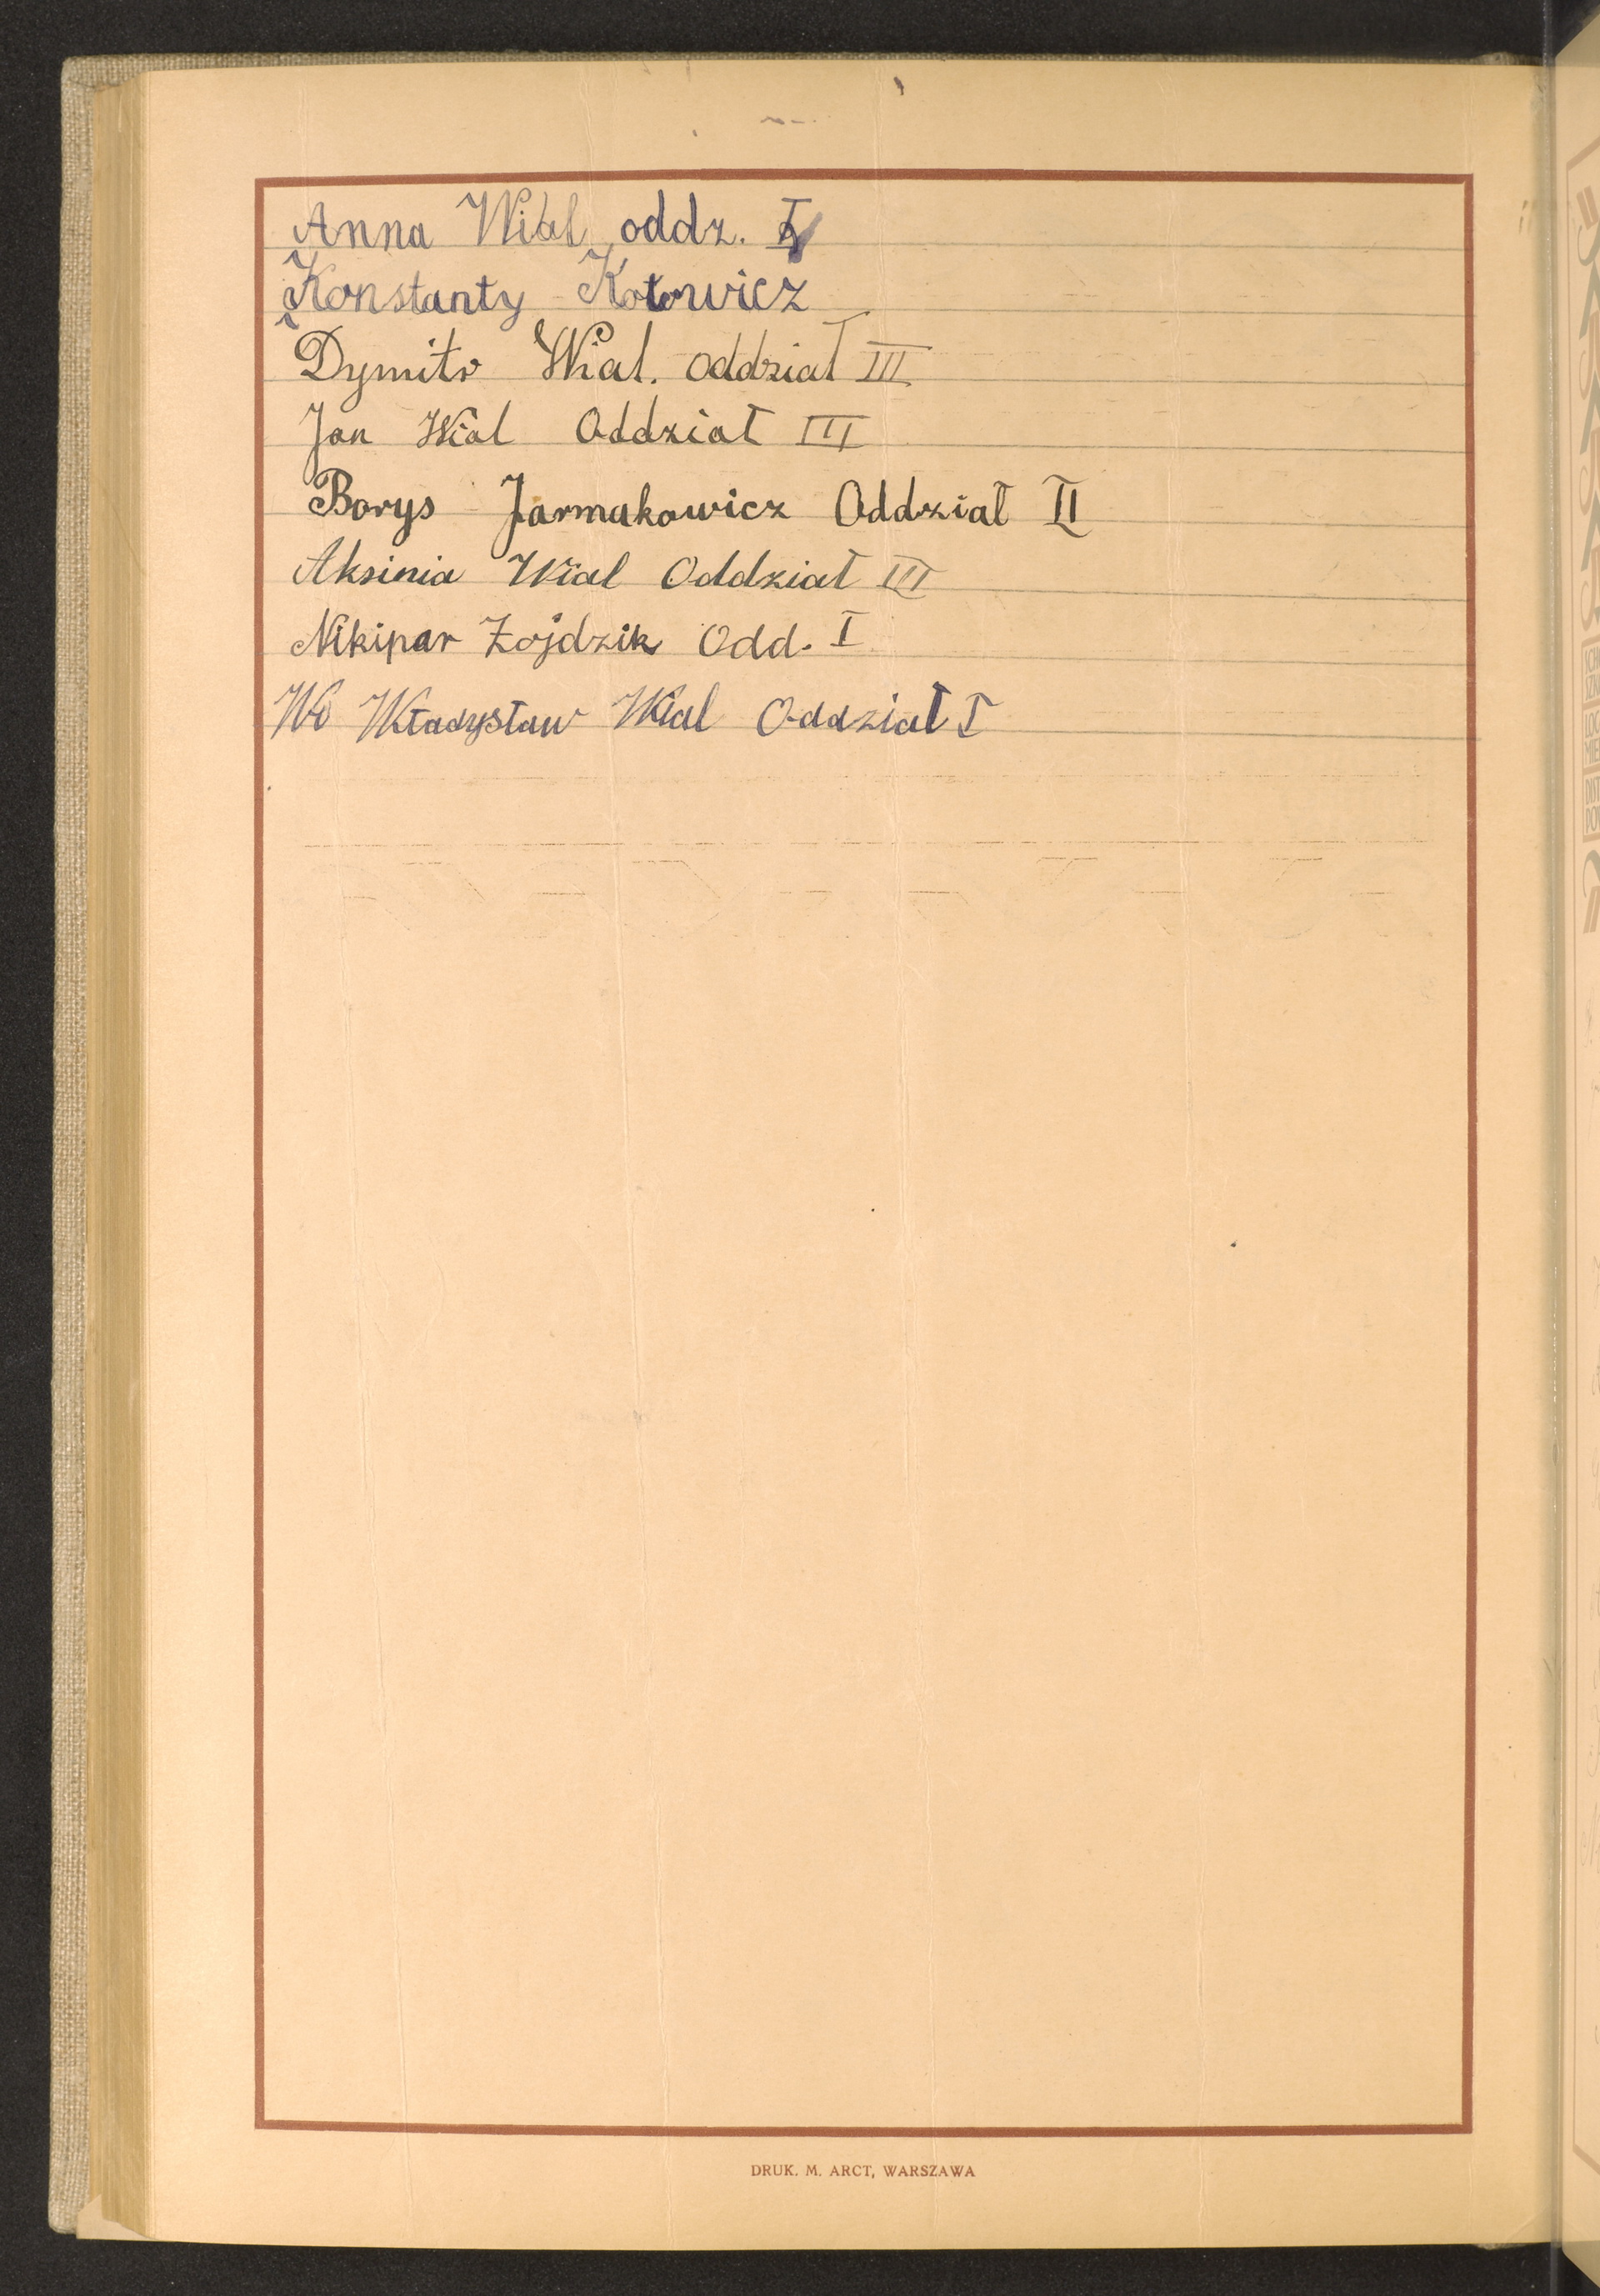 Anna Wial oddz. I
Konstanty Kotowicz
Dymitr Wial. oddział III
Jan Wial Oddział III
Borys Jarmakowicz Oddział II
Aksinia Wial Oddział III
Nikipar Zojdzik Odd. I
Wł Władysław Wial Oddział I
DRUK. M. ARCT, WARSZAWA